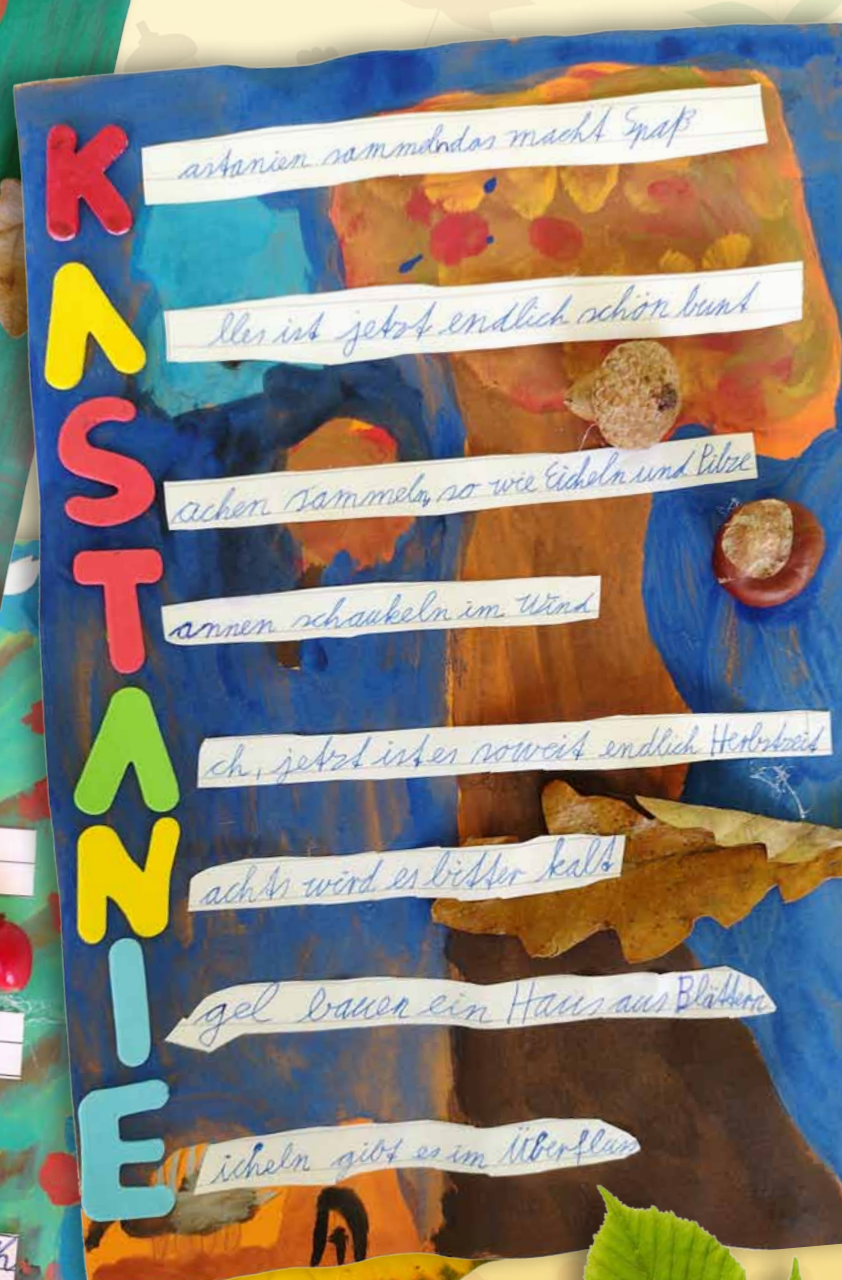 K astanien sammeln das macht Spaß
A lles ist jetzt endlich schön bunt
S achen sammeln, so wie Eicheln und Pilze
T annen schaukeln im Wind
A ch, jetzt ist es soweit endlich Herbstzeit
N achts wird es bitter kalt
I gel bauen ein Haus aus Blättern
E icheln gibt es im Überfluss